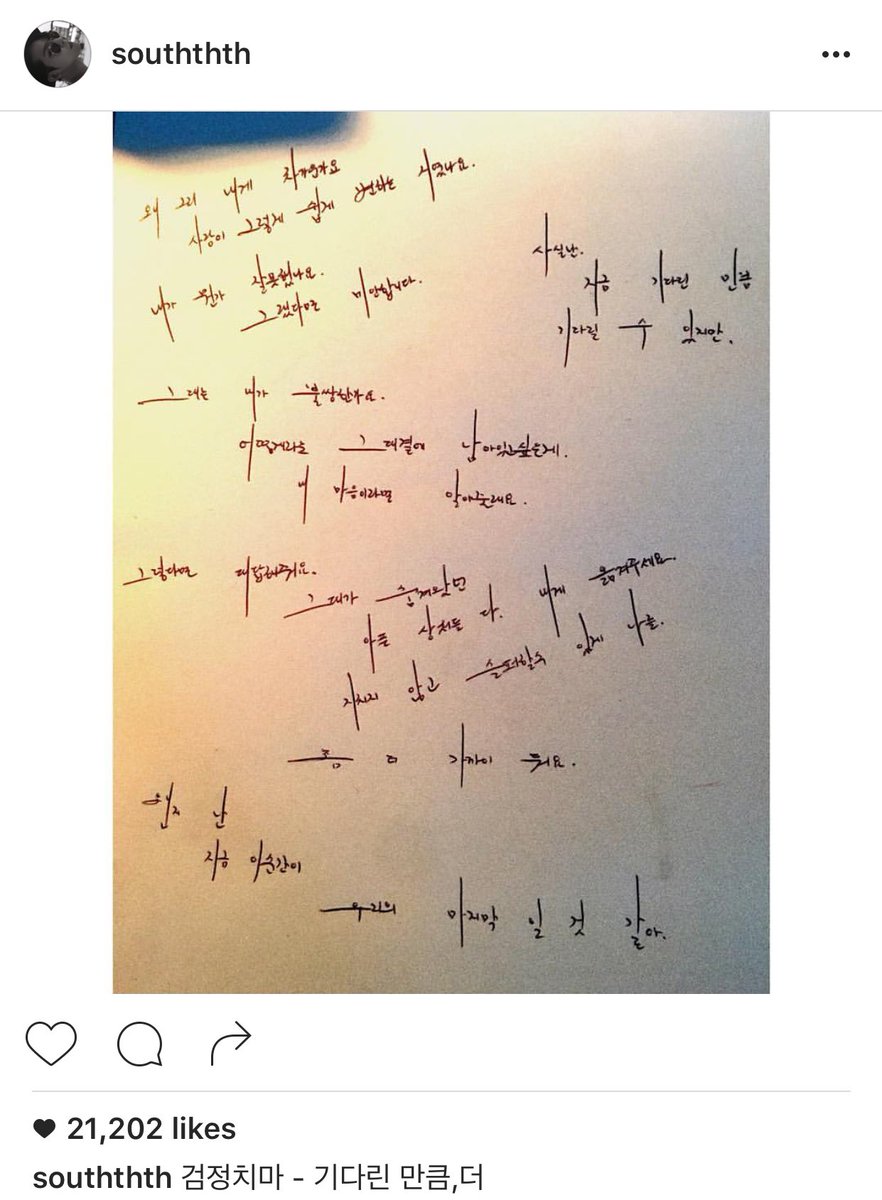 souththth
왜 그리 내게 차가운가요
사랑이 그렇게 쉽게 변하는 거였나요.
내가 뭔가 잘못했나요.
그랬다면 미안합니다.
사실난.
지금 기다린 만큼
기다릴 수 있지만.
그대는 내가 불쌍한가요.
어떻게라도 그대곁에 남아있고싶은게.
내 마음이라면 알아줄래요.
그렇다면 대답해줘요.
그대가 숨겨왔던
아픈 상처들 다. 내게 옮겨주세요.
지치지 않고 슬퍼할수 있게 나를.
좀 더 가까이 둬요.
왠지 난
지금 이순간이
우리의 마지막 일 것 같아.
21,202 likes
souththth 검정치마 - 기다린 만큼,더